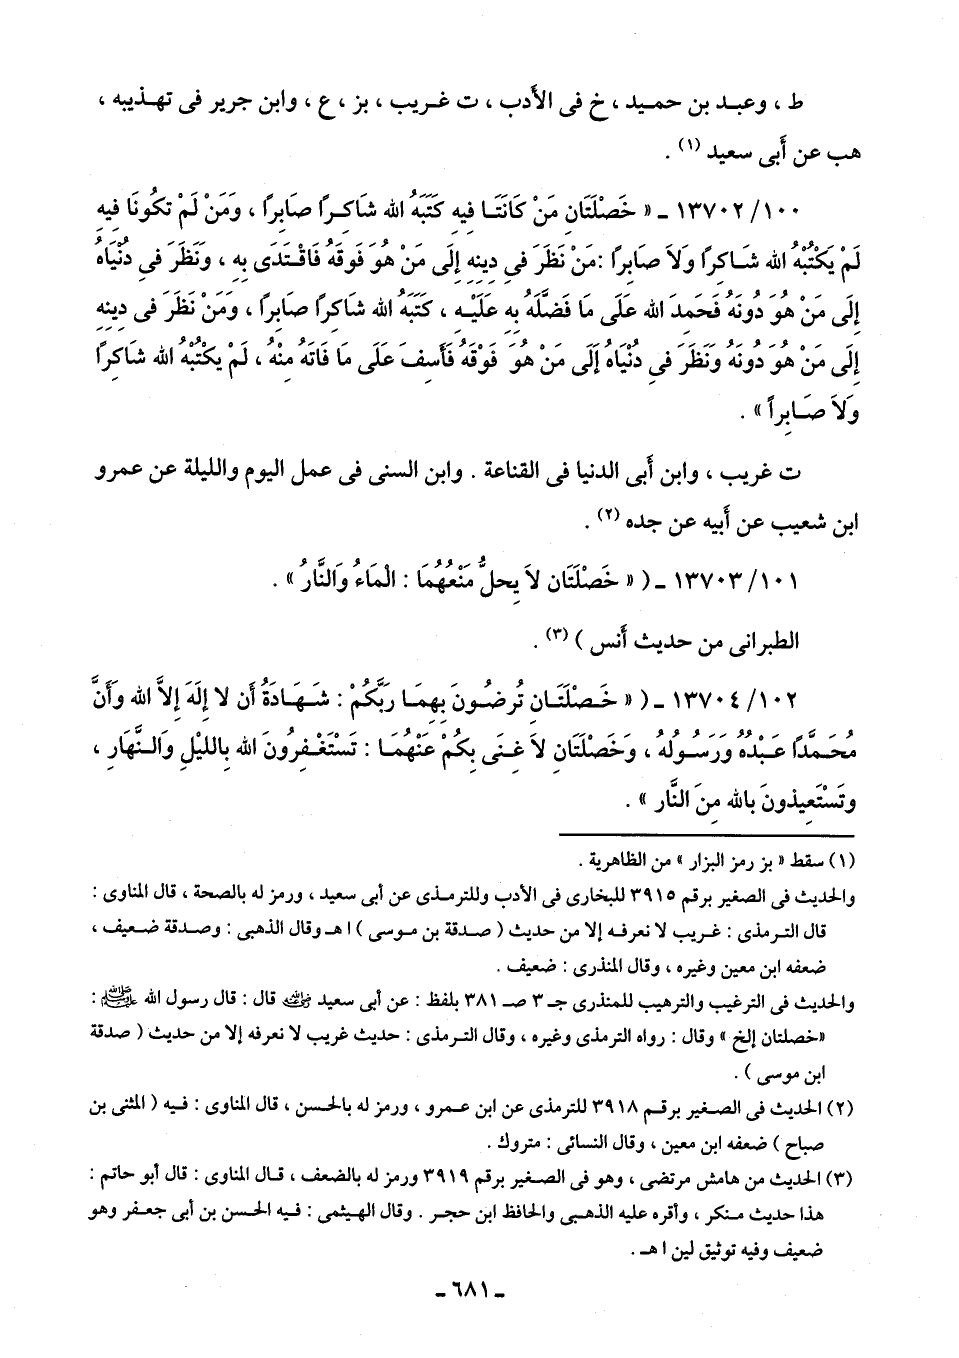 ط ، وعبد بن حميد ، خ فى الأَدب ، ت غريب ، بز ، ع ، وابن جرير فى تهذيبه ،
هب عن أَبى سعيد (١) .
١٣٧٠٢/١٠٠ ـ « خَصْلَتَانِ مَنْ كَانَتَا فِيهِ كَتَبَهُ الله شَاكِرًا صَابِرًا ، وَمَنْ لَمْ تَكُونَا فِيهِ
لَمْ يَكْتُبْهُ الله شَاكِرًا وَلاَ صَابِرًا : مَنْ نَظَرَ فِي دِينِهِ إِلَى مَنْ هُوَ فَوقَهُ فَاقْتَدَى بِهِ ، وَنَظَرَ فِي دُنْيَاهُ
إِلَى مَنْ هُوَ دُونَهُ فَحَمِدَ الله عَلَى مَا فَضَّلَهُ بِهِ عَلَيْهِ ، كَتَبَهُ الله شَاكِرًا صَابِرًا ، وَمَنْ نَظَرَ فِى دِينِهِ
إِلَى مَنْ هُوَ دُونَهُ وَنَظَرَ فِي دُنْيَاهُ إِلَى مَنْ هُوَ فَوْقَهُ فَأَسِفَ عَلَى مَا فَاتَهُ مِنْهُ ، لَمْ يَكْتُبْهُ الله شَاكِرًا
وَلاَ صَابِراً » .
ت غريب ، وابن أَبى الدنيا فى القناعة . وابن السنى فى عمل اليوم والليلة عن عمرو
ابن شعيب عن أَبيه عن جده (٢) .
١٣٧٠٣/١٠١ ـ ( « خَصْلَتَانِ لاَ يَحِلُّ مَنْعُهُمَا : الْمَاءُ وَالنَّارُ » .
الطبرانى من حديث أَنس ) (٣) .
١٣٧٠٤/١٠٢ ـ ( « خَصْلَتَانِ تُرضُونَ بِهِمَا رَبَّكُمْ : شَهَادَةُ أَن لا إِلَهَ إِلاَّ الله وَأَنَّ
مُحَمَّدًا عَبْدُهُ وَرَسُولُهُ ، وَخَصْلَتَانِ لاَ غِنَى بِكُمْ عَنْهُمَا : تَسْتَغْفِرُونَ الله بِاللَيْلِ وَالنَّهَارِ ،
وتَسْتَعِيذونَ بِالله مِنَ النَّارِ » .
(١) سقط « بز رمز البزار » من الظاهرية .
والحديث فى الصغير برقم ٣٩١٥ للبخارى فى الأدب وللترمذى عن أبى سعيد ، ورمز له بالصحة ، قال المناوى :
قال الترمذى : غريب لا نعرفه إلا من حديث ( صدقة بن موسى ) ا هـ وقال الذهبى : وصدقة ضعيف ،
ضعفه ابن معين وغيره ، وقال المنذرى : ضعيف .
والحديث فى الترغيب والترهيب للمنذرى جـ ٣ صـ ٣٨١ بلفظ : عن أبى سعيد رضي الله عنه قال : قال رسول الله ﷺ :
«خصلتان إلخ » وقال : رواه الترمذى وغيره ، وقال الترمذى : حديث غريب لا نعرفه إلا من حديث ( صدقة
ابن موسى ) .
(٢) الحديث فى الصغير برقم ٣٩١٨ للترمذى عن ابن عمرو ، ورمز له بالحسن ، قال المناوى : فيه ( المثنى بن
صباح ) ضعفه ابن معين ، وقال النسائى : متروك .
(٣) الحديث من هامش مرتضى ، وهو فى الصغير برقم ٣٩١٩ ورمز له بالضعف ، قال المناوى : قال أبو حاتم :
هذا حديث منكر ، وأقره عليه الذهبى والحافظ ابن حجر . وقال الهيثمى : فيه الحسن بن أبى جعفر وهو
ضعيف وفيه توثيق لين ا هـ .
ـ ٦٨١ ـ